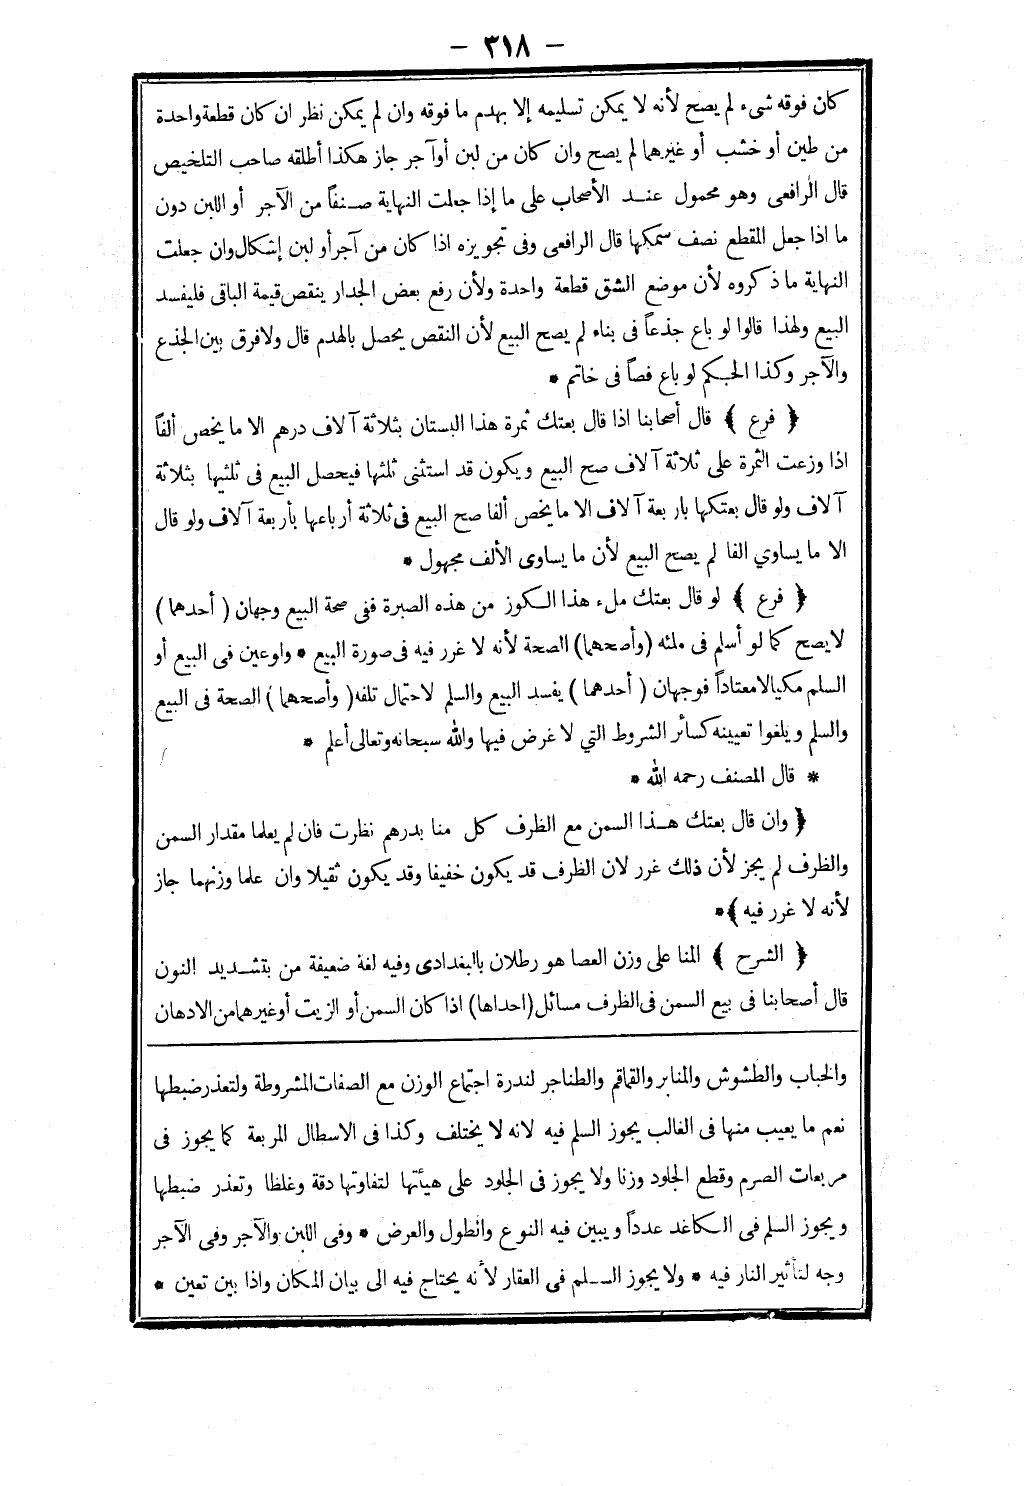 — ٣١٨ —
كان فوقه شىء لم يصح لأنه لا يمكن تسليمه إلا بهدم ما فوقه وان لم يمكن نظر ان كان قطعة واحدة
من طين أو خشب أو غيرهما لم يصح وان كان من لبن أو آجر جاز هكذا أطلقه صاحب التلخيص
قال الرافعى وهو محمول عند الأصحاب على ما إذا جعلت النهاية صنفاً من الآجر أو اللبن دون
ما اذا جعل المقطع نصف سمكها قال الرافعى وفى تجويزه اذا كان من آجر أو لبن إشكال وان جعلت
النهاية ما ذكروه لأن موضع الشق قطعة واحدة ولأن رفع بعض الجدار ينقص قيمة الباقى فليفسد
البيع ولهذا قالوا لو باع جذعاً فى بناء لم يصح البيع لأن النقص يحصل بالهدم قال ولا فرق بين الجذع
والآجر وكذا الحكم لو باع فصاً فى خاتم *
﴿ فرع ﴾ قال أصحابنا اذا قال بعتك ثمرة هذا البستان بثلاثة آلاف درهم الا ما يخص ألفاً
اذا وزعت الثمرة على ثلاثة آلاف صح البيع ويكون قد استثنى ثلثها فيحصل البيع فى ثلثيها بثلاثة
آلاف ولو قال بعتكها باربعة آلاف الا ما يخص ألفا صح البيع فى ثلاثة أرباعها بأربعة آلاف ولو قال
الا ما يساوي الفا لم يصح البيع لأن ما يساوى الألف مجهول *
﴿ فرع ﴾ لو قال بعتك ملء هذا الكوز من هذه الصبرة ففى صحة البيع وجهان ( أحدهما )
لا يصح كما لو أسلم فى ملئه (وأصحهما) الصحة لأنه لا غرر فيه فى صورة البيع * ولو عين فى البيع أو
السلم مكيالا معتاداً فوجهان ( أحدهما ) يفسد البيع والسلم لاحتمال تلفه ( وأصحهما ) الصحة فى البيع
والسلم ويلغوا تعيينه كسائر الشروط التي لا غرض فيها والله سبحانه وتعالى أعلم *
* قال المصنف رحمه الله *
﴿ وان قال بعتك هذا السمن مع الظرف كل منا بدرهم نظرت فان لم يعلما مقدار السمن
والظرف لم يجز لأن ذلك غرر لان الظرف قد يكون خفيفا وقد يكون ثقيلا وان علما وزنهما جاز
لأنه لا غرر فيه ﴾ *
﴿ الشرح ﴾ المنا على وزن العصا هو رطلان بالبغدادى وفيه لغة ضعيفة من بتشديد النون
قال أصحابنا فى بيع السمن فى الظرف مسائل (احداها) اذا كان السمن أو الزيت أو غيرهما من الادهان
والحباب والطشوش والمنابر والقماقم والطناجر لندرة اجتماع الوزن مع الصفات المشروطة ولتعذر ضبطها
نعم ما يعيب منها فى الغالب يجوز السلم فيه لانه لا يختلف وكذا فى الاسطال المربعة كما يجوز فى
مربعات الصرم وقطع الجلود وزنا ولا يجوز فى الجلود على هيأتها لتفاوتها دقة وغلظا وتعذر ضبطها
ويجوز السلم فى الكاغد عدداً ويبين فيه النوع والطول والعرض * وفى اللبن والآجر وفى الآجر
وجه لتأثير النار فيه * ولا يجوز السلم فى العقار لأنه يحتاج فيه الى بيان المكان واذا بين تعين *